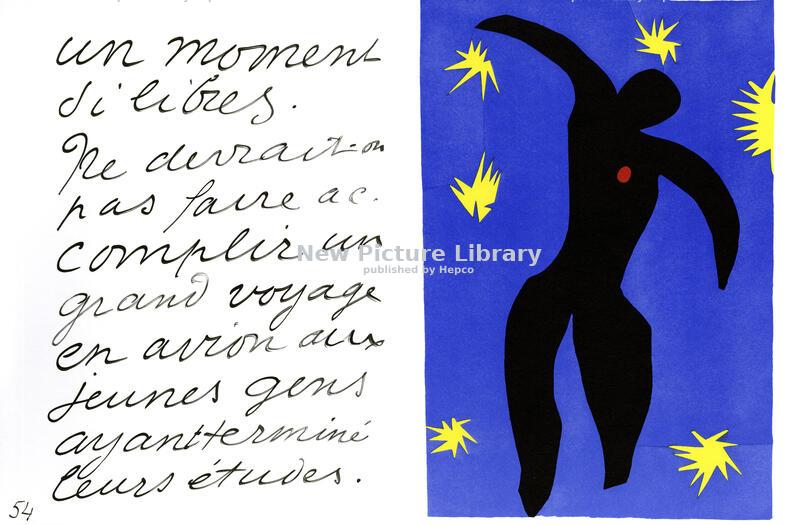 un moment
si libres.
Ne devrait-on
pas faire ac-
complir un
grand voyage
en avion aux
jeunes gens
ayant terminé
leurs études.
54
New Picture Library
published by Hepco